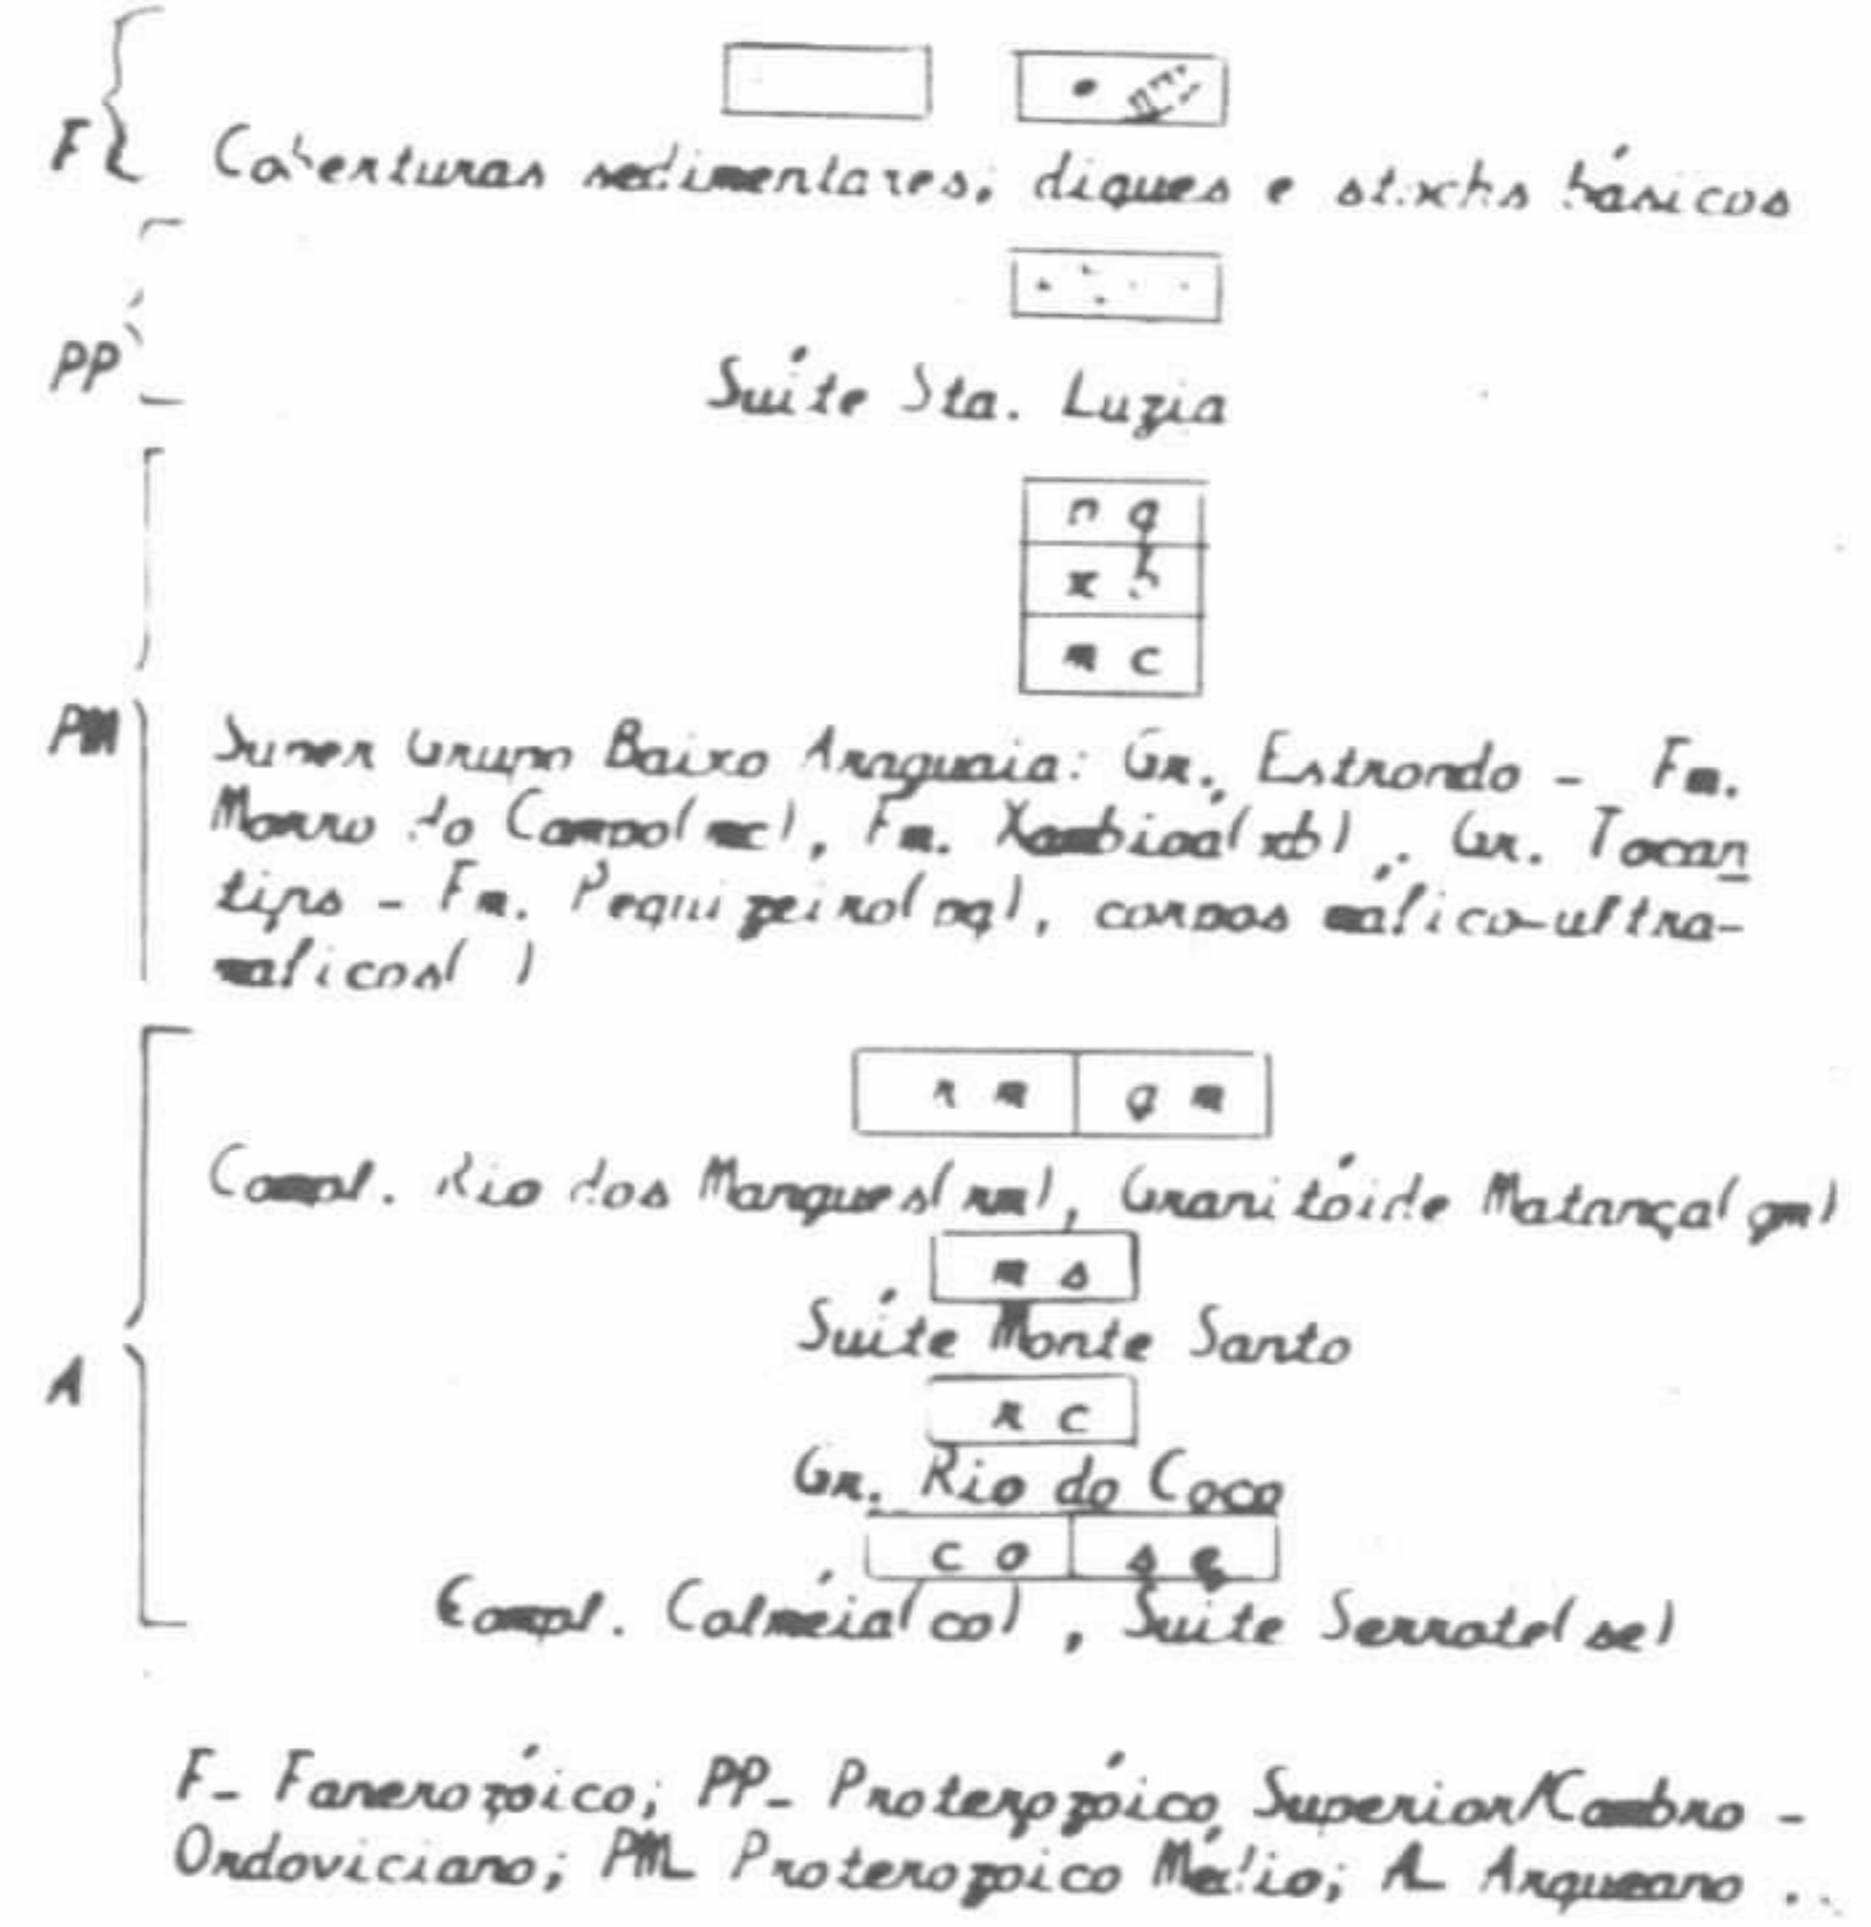 F Coberturas sedimentares, diques e stocks básicos
PP
Suíte Sta. Luzia
p q
x b
m c
PM Super Grupo Baixo Araguaia: Gr. Estrondo - Fm.
Morro do Campo(mc), Fm. Xambioá(xb), Gr. Tocan
tins - Fm. Pequizeiro(pq), corpos máfico-ultra-
máficos( )
r m g m
Compl. Rio dos Mangues(rm), Granitóide Matança(gm)
m s
Suíte Monte Santo
A
r c
Gr. Rio do Coco
c o s e
Compl. Colméia(co), Suíte Serrote(se)
F- Fanerozóico; PP- Proterozóico Superior/Cambro-
Ordoviciano; PM- Proterozoico Médio; A- Arqueano